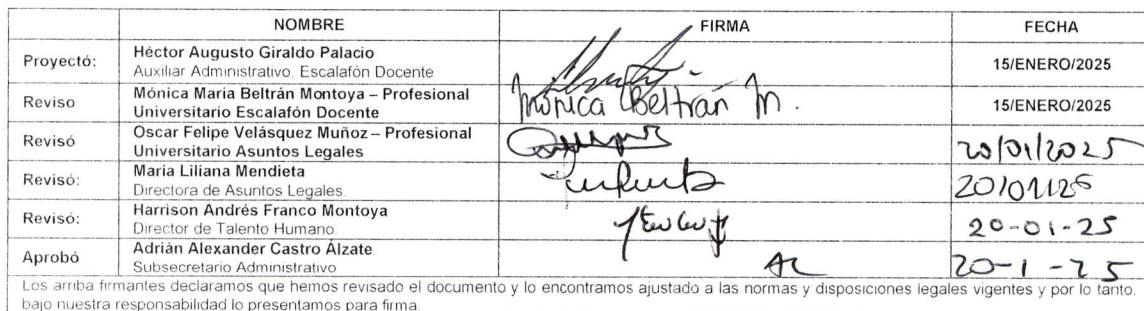 NOMBRE FIRMA FECHA
Proyectó: Héctor Augusto Giraldo Palacio
Auxiliar Administrativo. Escalafón Docente
15/ENERO/2025
Reviso Mónica María Beltrán Montoya – Profesional
Universitario Escalafón Docente
Mónica Beltrán M.
15/ENERO/2025
Revisó Oscar Felipe Velásquez Muñoz – Profesional
Universitario Asuntos Legales
20/01/2025
Revisó: María Liliana Mendieta
Directora de Asuntos Legales.
20/01/25
Revisó: Harrison Andrés Franco Montoya
Director de Talento Humano.
20-01-25
Aprobó Adrián Alexander Castro Álzate
Subsecretario Administrativo
20-1-25
Los arriba firmantes declaramos que hemos revisado el documento y lo encontramos ajustado a las normas y disposiciones legales vigentes y por lo tanto.
bajo nuestra responsabilidad lo presentamos para firma.